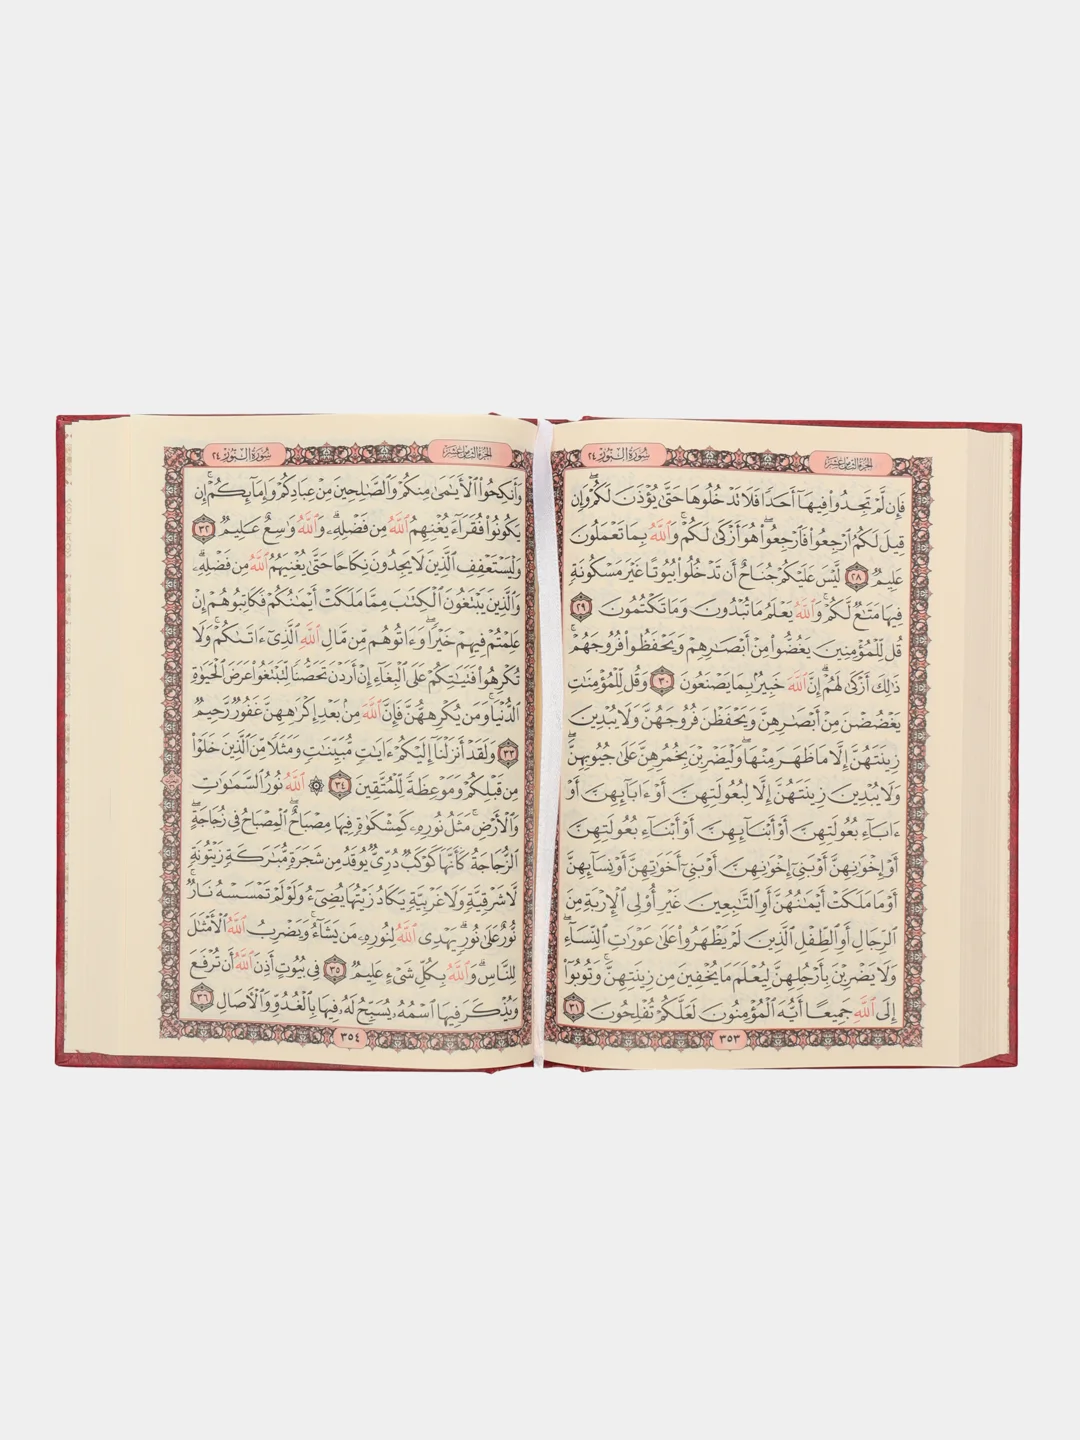 الجزء الثامن عشر
سورة النور ٢٤
فَإِن لَّمْ تَجِدُوا۟ فِيهَآ أَحَدًا فَلَا تَدْخُلُوهَا حَتَّىٰ يُؤْذَنَ لَكُمْ ۖ وَإِن
قِيلَ لَكُمُ ٱرْجِعُوا۟ فَٱرْجِعُوا۟ ۖ هُوَ أَزْكَىٰ لَكُمْ ۚ وَٱللَّهُ بِمَا تَعْمَلُونَ
عَلِيمٌ ٢٨ لَّيْسَ عَلَيْكُمْ جُنَاحٌ أَن تَدْخُلُوا۟ بُيُوتًا غَيْرَ مَسْكُونَةٍ
فِيهَا مَتَـٰعٌ لَّكُمْ ۚ وَٱللَّهُ يَعْلَمُ مَا تُبْدُونَ وَمَا تَكْتُمُونَ ٢٩
قُل لِّلْمُؤْمِنِينَ يَغُضُّوا۟ مِنْ أَبْصَـٰرِهِمْ وَيَحْفَظُوا۟ فُرُوجَهُمْ ۚ
ذَٰلِكَ أَزْكَىٰ لَهُمْ ۗ إِنَّ ٱللَّهَ خَبِيرٌۢ بِمَا يَصْنَعُونَ ٣٠ وَقُل لِّلْمُؤْمِنَـٰتِ
يَغْضُضْنَ مِنْ أَبْصَـٰرِهِنَّ وَيَحْفَظْنَ فُرُوجَهُنَّ وَلَا يُبْدِينَ
زِينَتَهُنَّ إِلَّا مَا ظَهَرَ مِنْهَا ۖ وَلْيَضْرِبْنَ بِخُمُرِهِنَّ عَلَىٰ جُيُوبِهِنَّ ۖ
وَلَا يُبْدِينَ زِينَتَهُنَّ إِلَّا لِبُعُولَتِهِنَّ أَوْ ءَابَآئِهِنَّ أَوْ
ءَابَآءِ بُعُولَتِهِنَّ أَوْ أَبْنَآئِهِنَّ أَوْ أَبْنَآءِ بُعُولَتِهِنَّ
أَوْ إِخْوَٰنِهِنَّ أَوْ بَنِىٓ إِخْوَٰنِهِنَّ أَوْ بَنِىٓ أَخَوَٰتِهِنَّ أَوْ نِسَآئِهِنَّ
أَوْ مَا مَلَكَتْ أَيْمَـٰنُهُنَّ أَوِ ٱلتَّـٰبِعِينَ غَيْرِ أُو۟لِى ٱلْإِرْبَةِ مِنَ
ٱلرِّجَالِ أَوِ ٱلطِّفْلِ ٱلَّذِينَ لَمْ يَظْهَرُوا۟ عَلَىٰ عَوْرَٰتِ ٱلنِّسَآءِ ۖ
وَلَا يَضْرِبْنَ بِأَرْجُلِهِنَّ لِيُعْلَمَ مَا يُخْفِينَ مِن زِينَتِهِنَّ ۚ وَتُوبُوٓا۟
إِلَى ٱللَّهِ جَمِيعًا أَيُّهَ ٱلْمُؤْمِنُونَ لَعَلَّكُمْ تُفْلِحُونَ ٣١
٣٥٣
الجزء الثامن عشر
سورة النور ٢٤
وَأَنكِحُوا۟ ٱلْأَيَـٰمَىٰ مِنكُمْ وَٱلصَّـٰلِحِينَ مِنْ عِبَادِكُمْ وَإِمَآئِكُمْ ۚ إِن
يَكُونُوا۟ فُقَرَآءَ يُغْنِهِمُ ٱللَّهُ مِن فَضْلِهِۦ ۗ وَٱللَّهُ وَٰسِعٌ عَلِيمٌ ٣٢
وَلْيَسْتَعْفِفِ ٱلَّذِينَ لَا يَجِدُونَ نِكَاحًا حَتَّىٰ يُغْنِيَهُمُ ٱللَّهُ مِن فَضْلِهِۦ ۗ
وَٱلَّذِينَ يَبْتَغُونَ ٱلْكِتَـٰبَ مِمَّا مَلَكَتْ أَيْمَـٰنُكُمْ فَكَاتِبُوهُمْ إِنْ
عَلِمْتُمْ فِيهِمْ خَيْرًا ۖ وَءَاتُوهُم مِّن مَّالِ ٱللَّهِ ٱلَّذِىٓ ءَاتَىٰكُمْ ۚ وَلَا
تُكْرِهُوا۟ فَتَيَـٰتِكُمْ عَلَى ٱلْبِغَآءِ إِنْ أَرَدْنَ تَحَصُّنًا لِّتَبْتَغُوا۟ عَرَضَ ٱلْحَيَوٰةِ
ٱلدُّنْيَا ۚ وَمَن يُكْرِههُّنَّ فَإِنَّ ٱللَّهَ مِنۢ بَعْدِ إِكْرَٰهِهِنَّ غَفُورٌ رَّحِيمٌ
٣٣ وَلَقَدْ أَنزَلْنَآ إِلَيْكُمْ ءَايَـٰتٍ مُّبَيِّنَـٰتٍ وَمَثَلًا مِّنَ ٱلَّذِينَ خَلَوْا۟
مِن قَبْلِكُمْ وَمَوْعِظَةً لِّلْمُتَّقِينَ ٣٤ ۞ ٱللَّهُ نُورُ ٱلسَّمَـٰوَٰتِ
وَٱلْأَرْضِ ۚ مَثَلُ نُورِهِۦ كَمِشْكَوٰةٍ فِيهَا مِصْبَاحٌ ۖ ٱلْمِصْبَاحُ فِى زُجَاجَةٍ ۖ
ٱلزُّجَاجَةُ كَأَنَّهَا كَوْكَبٌ دُرِّىٌّ يُوقَدُ مِن شَجَرَةٍ مُّبَـٰرَكَةٍ زَيْتُونَةٍ
لَّا شَرْقِيَّةٍ وَلَا غَرْبِيَّةٍ يَكَادُ زَيْتُهَا يُضِىٓءُ وَلَوْ لَمْ تَمْسَسْهُ نَارٌ ۚ
نُّورٌ عَلَىٰ نُورٍ ۗ يَهْدِى ٱللَّهُ لِنُورِهِۦ مَن يَشَآءُ ۚ وَيَضْرِبُ ٱللَّهُ ٱلْأَمْثَـٰلَ
لِلنَّاسِ ۗ وَٱللَّهُ بِكُلِّ شَىْءٍ عَلِيمٌ ٣٥ فِى بُيُوتٍ أَذِنَ ٱللَّهُ أَن تُرْفَعَ
وَيُذْكَرَ فِيهَا ٱسْمُهُۥ يُسَبِّحُ لَهُۥ فِيهَا بِٱلْغُدُوِّ وَٱلْـَٔاصَالِ ٣٦
٣٥٤